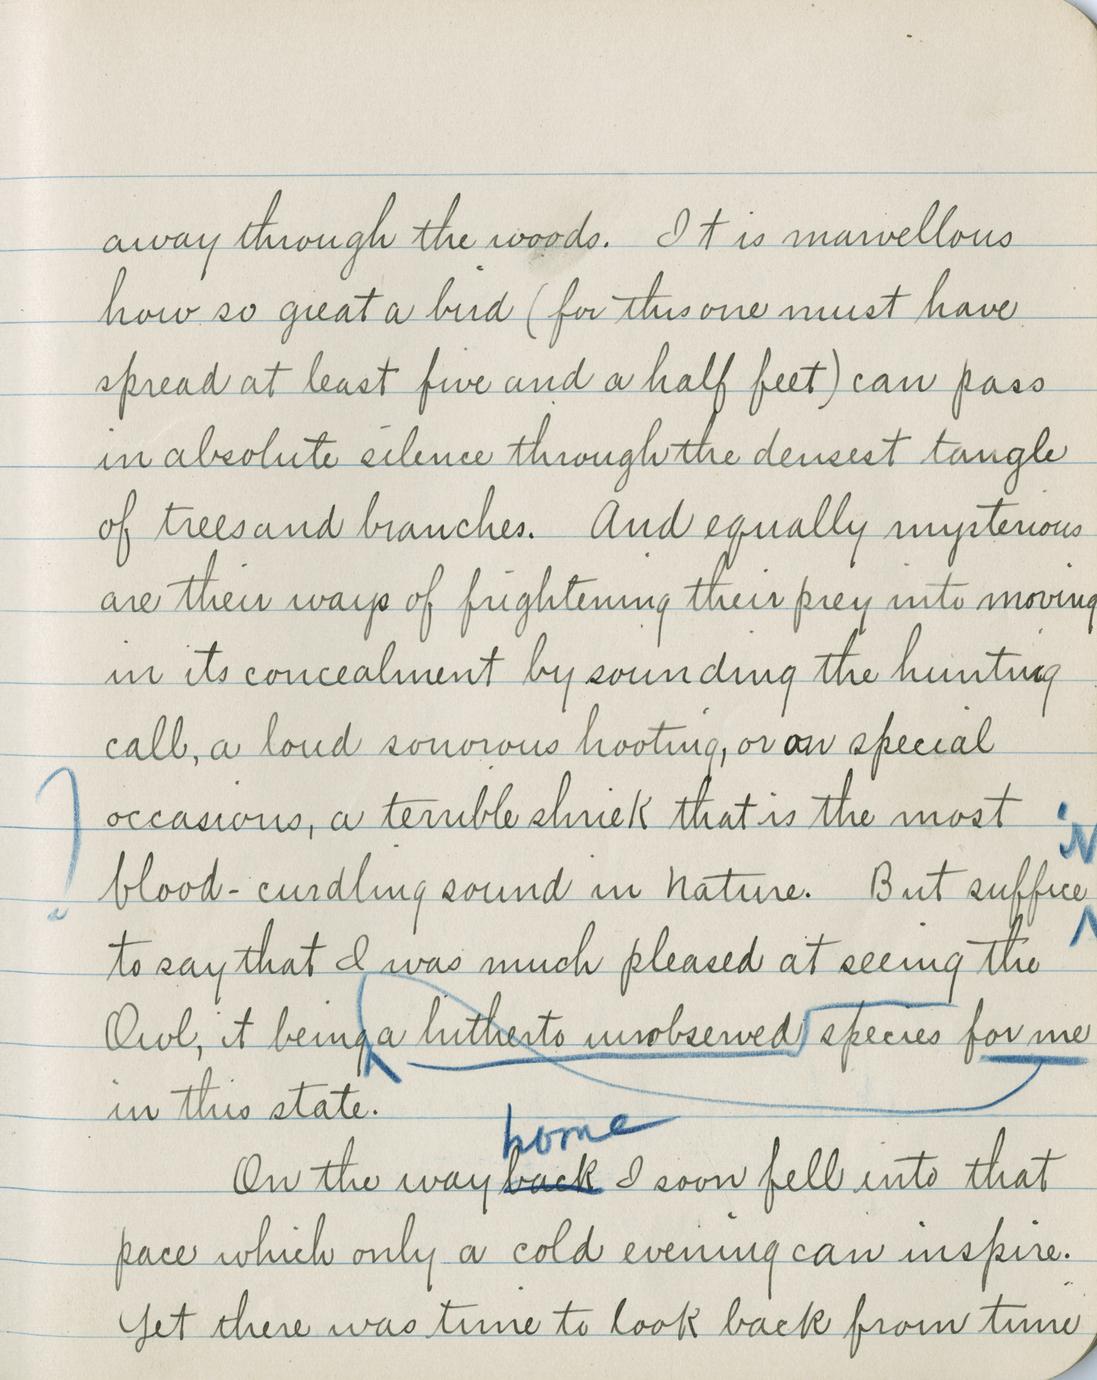 away through the woods. It is marvellous
how so great a bird (for this one must have
spread at least five and a half feet) can pass
in absolute silence through the densest tangle
of trees and branches. And equally mysterious
are their ways of frightening their prey into moving
in its concealment by sounding the hunting
call, a loud sonorous hooting, or on special
occasions, a terrible shriek that is the most
? N
blood-curdling sound in nature. But suffice
to say that I was much pleased at seeing the
Owl, it being a hitherto unobserved species for me
in this state.
home
On the way back I soon fell into that
pace which only a cold evening can inspire.
Yet there was time to look back from time